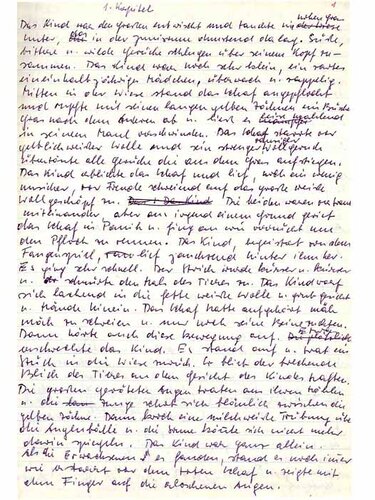 1. Kapitel 1
Das Kind war den Großen entwischt und tauchte in das hohe Gras
unter, das in der Junisonne dunstend da lag. Süße,
bittere u. wilde Gerüche schlugen über seinem Kopf zu-
sammen. Das Kind war noch sehr klein, ein zartes
eineinhalbjähriges Mädchen, überwach u. zappelig.
Mitten in der Wiese stand das Schaf angepflockt
und rupfte mit seinen langen gelben Zähnen ein Büschel
Gras nach dem Anderen ab u. ließ es mahlend
in seinem Maul verschwinden. Das Schaf starrte vor
gelblichweißer Wolle und sein strenger Wollgeruch
übertönte alle Gerüche die aus dem Gras aufstiegen.
Das Kind erblickte das Schaf und lief, noch ein wenig
unsicher, vor Freude schreiend auf das große weiße
Wollgeschöpf zu. Die beiden waren vertraut
miteinander aber aus irgend einem Grund geriet
das Schaf in Panik u. fing an wie verrückt um
den Pflock zu rennen. Das Kind, begeistert von dem
Fangenspiel, lief jauchzend hinter ihm her.
Es ging sehr schnell. Der Strick wurde kürzer u. kürzer
u. schnürte den Hals des Tieres zu. Das Kind warf
sich lachend in die fette weiße Wolle u. grub Gesicht
u. Hände hinein. Das Schaf hatte aufgehört mäh
mäh zu schreien u. nur noch seine Beine zuckten.
Dann hörte auch diese Bewegung auf. Es
erschreckte das Kind. Es stand auf u. trat ein
Stück in die Wiese zurück. Es blieb der brechende
Blick des Tieres an dem Gesicht des Kindes haften.
Die großen geröteten Augen traten aus ihren Höhlen
u. die Zunge schob sich bläulich zwischen die
gelben Zähne. Dann kroch eine milchweiße Trübung über
die Augenbälle u. die Sonne konnte sich nicht mehr
darin spiegeln. Das Kind war ganz allein.
Als die Erwachsenen es fanden, stand es noch immer
wie erstarrt vor dem toten Schaf u. zeigte mit
dem Finger auf die erloschenen Augen.